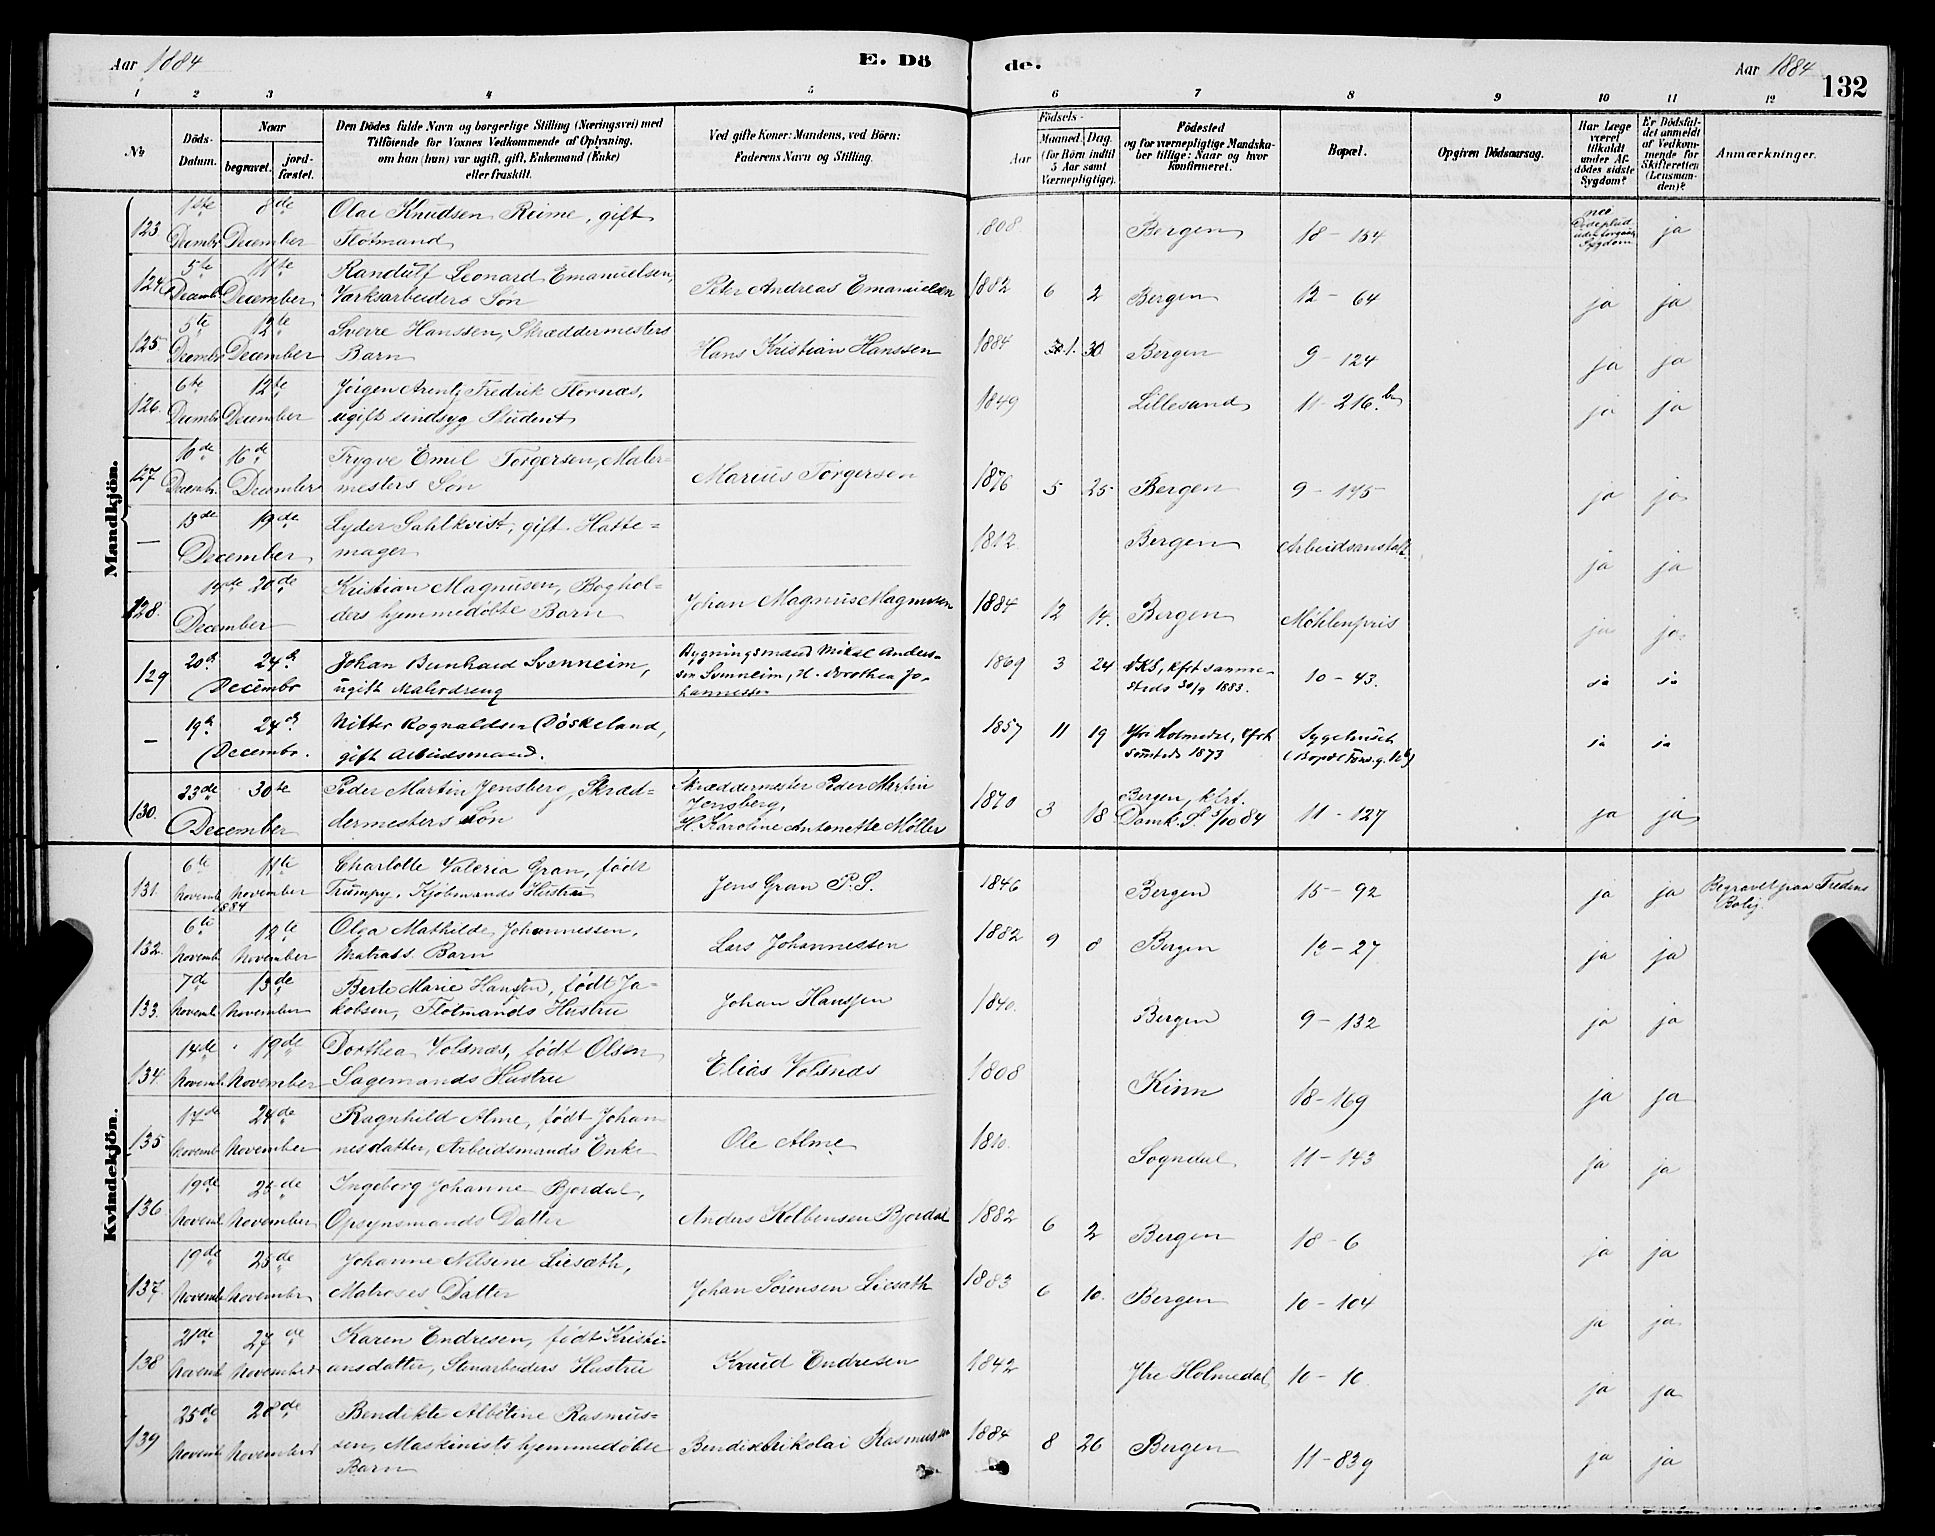 Aar 1884
E. Dö
de.
Aar 1884
132
1 2 3 4 5 6 7 8 9 10 11 12
No
Döds-Datum.
Naar
begravet.
jord-fæstet.
Den Dödes fulde Navn og borgerlige Stilling (Næringsvei) med
Tilföiende for Voxnes Vedkommende af Oplysning,
om han (hun) var ugift, gift, Enkemand (Enke)
eller fraskilt.
Ved gifte Koner: Mandens, ved Börn:
Faderens Navn og Stilling.
Födsels-
Aar
Maaned.
Dag.
(for Börn indtil
5 Aar samt
Værnepligtige).
Födested
og for værnepligtige Mandska-
ber tillige: Naar og hvor
konfirmeret.
Bopæl.
Opgiven Dödsaarsag.
Har Læge
været
tilkaldt
under Af-
dödes sidste
Sygdom?
Er Dödsfal-
det anmeldt
af Vedkom-
mende for
Skifteretten
(Lensman-
den)?
Anmærkninger.
Mandkjön.
123 1ste Decembr 8de December Olai Knudsen Reime, gift Flötmand 1808 Bergen 18-154 nei ja
124 5te Decembr 11te December Randulf Leonard Emanuelsen, Værksarbeiders Søn Peter Andreas Emanuelsen 1882 6 2 Bergen 12-64 ja ja
125 5te Decembr 12te December Sverre Hanssen, Skræddermesters Barn Hans Kristian Hanssen 1884 1. 30 Bergen 9-124 ja ja
126. 6te Decembr 12te December Jörgen Arentz Fredrik Hornæs, ugift sindsyg Student 1849 Lillesand 11-216.b ja ja
127 10de Decembr. 16de December Trygve Emil Torgersen, Malermesters Søn Marius Torgersen 1876 5 25 Bergen 9-175 ja ja
— 13de 19de December Lyder Sahlkvist, gift Hattemager 1812 Bergen Arbeidsanstalt. ja ja
128. 14de 20de December Kristian Magnusen, Bogholders hjemmedøbte Barn Johan Magnus Magnussen 1884 12 14. Bergen Möhlenpris ja ja
129 20de 24de Decembr Johan Bernhard Svenheim, ugift Malerdreng Bygningsmand Mikal Andersen Svenheim, H. Dorothea Johannessen 1869 3 24 NKS, kfrt samme-steds 30/9 1883. 10-43. ja ja
— 19de 24de Decembr. Nitter Rognaldsen Döskeland, gift Arbeidsmand. 1857 11 19 Ytre Holmedal, kfrt samsteds 1873 Sygehuset ja ja
130. 23de 30te December Peder Martin Jensberg, Skræddermesters Søn Skræddermester Peder Martin Jensberg, H. Karoline Antonette Möller 1870 3 18 Bergen, kfrt. Domk. S. 5/10 84 11-127 ja ja
Kvindekjön.
131. 6te Novemb. 1884 11te November Charlotte Valeria Gran, født Trumpy, Kjöbmands Hustru Jens Gran P.S. 1846 Bergen 15-92 ja ja Begravet paa Fredens Bolig.
132. 6te Novemb 12te November Olga Mathilde Johannessen, Matros's Barn Lars Johannessen 1882 9 8 Bergen 12-27 ja ja
133. 7de Novemb. 13de November Berte Marie Hansen, født Jakobsen, Flotmands Hustru Johan Hansen 1840. Bergen 9-132 ja ja
134. 14de Novemb. 19de November Dorthea Volsnæs, født Olsen Sagemands Hustru Elias Volsnæs 1808 Kinn 18-169 ja ja
135 17de Novemb. 24de November Ragnhild Alme, født Johannesdatter, Arbeidsmands Enke Ole Alme 1810. Sogndal 11-143 ja ja
136. 19de Novemb. 25de November Ingeborg Johanne Bjordal, Opsynsmands Datter Anders Kolbensen Bjordal 1882 6 2 Bergen 18-6 ja ja
137. 19de Novemb. 25de Novembr Johanne Nilsine Liesæth, Matroses Datter Johan Sörensen Liesæth 1883 6 10. Bergen 10-104 ja ja
138 21de Novemb. 27de November Karen Endresen, født Kristiansdatter, Stenarbeiders Hustru Knud Endresen 1842 Ytre Holmedal 10-10 ja ja
139 25de Novemb. 28de November Bendikte Albertine Rasmussen, Maskinists hjemmedøbte Barn Bendix Nikolai Rasmussen 1884 8 26 Bergen 11-839 ja ja